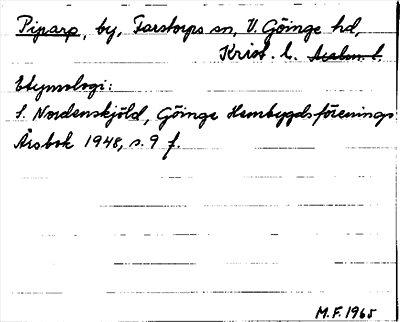 Piparp, by, Farstorps sn, V. Göinge hd,
Krist. l. Malm. l.
Etymologi:
S. Nordenskjöld, Göinge Hembygdsförenings
Årsbok 1948, s. 9 f.
M.F. 1965